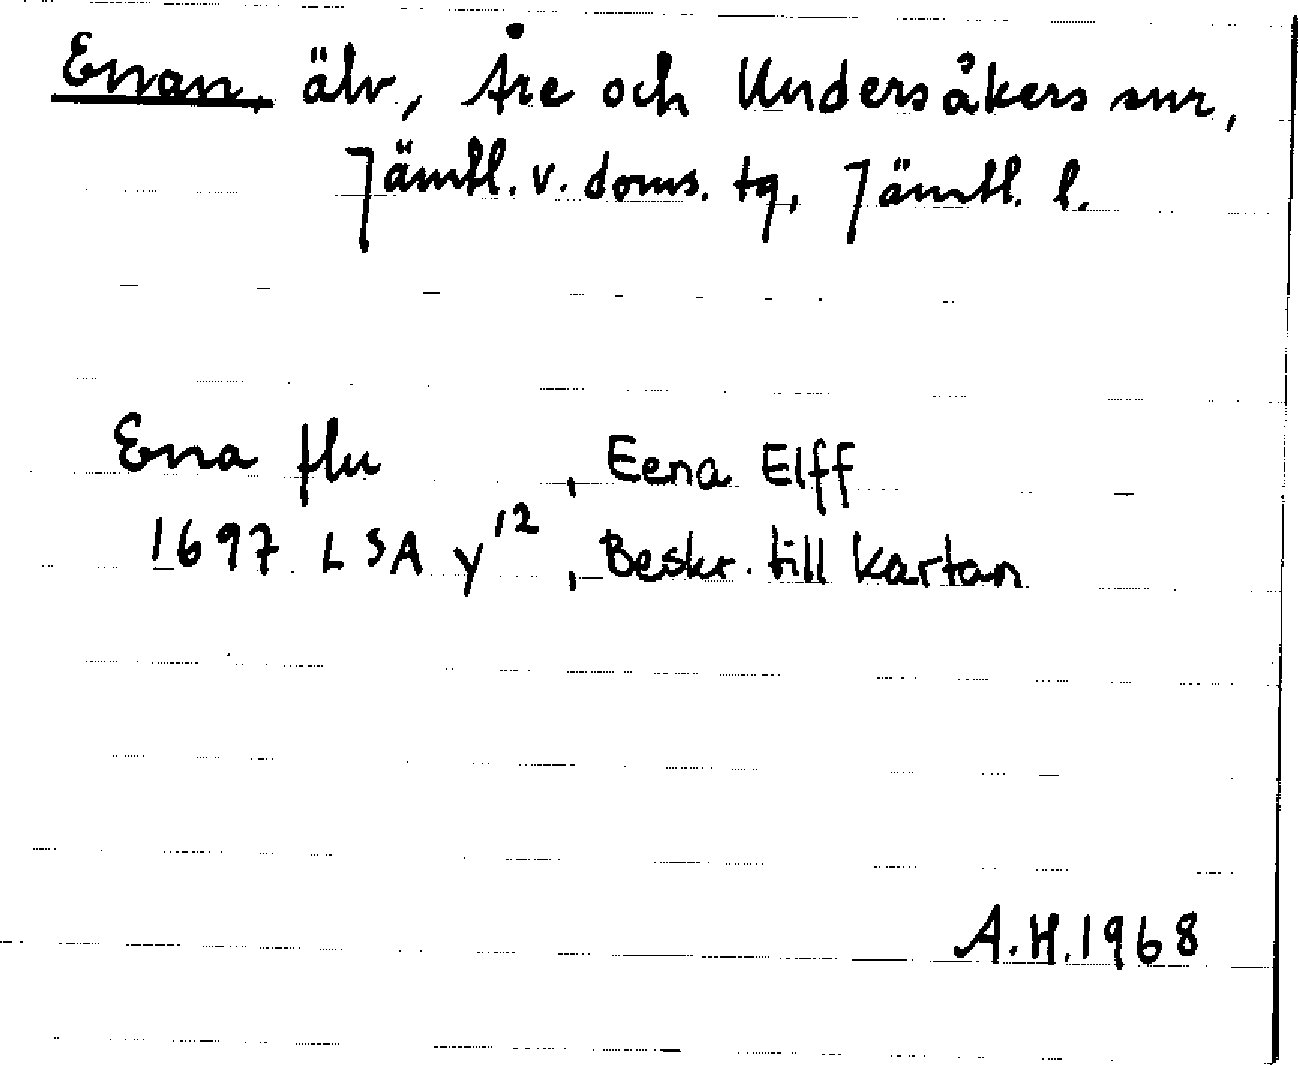 Enan, älv, Åre och Undersåkers snr,
Jämtl. v. doms. tg, Jämtl. l.
Ena flu, Eena Elff
1697 LSA y12, Beskr. till kartan
A.H. 1968